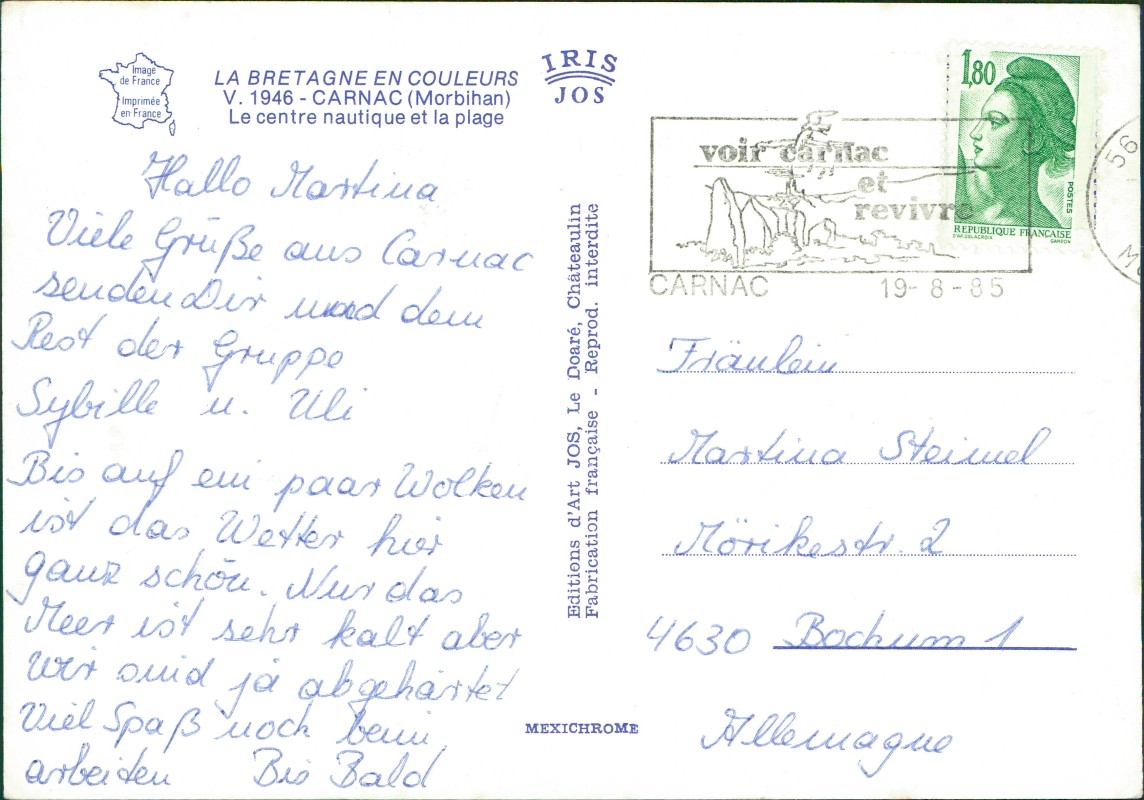 Image
de France
Imprimée
en France
LA BRETAGNE EN COULEURS
V. 1946 - CARNAC (Morbihan)
Le centre nautique et la plage
IRIS
JOS
Hallo Martina
Viele Grüße aus Carnac
senden Dir und dem
Rest der Gruppe
Sybille u. Uli
Bis auf ein paar Wolken
ist das Wetter hier
ganz schön. Nur das
Meer ist sehr kalt aber
wir sind ja abgehärtet
Viel Spaß noch beim
arbeiten Bis Bald
Editions d'Art JOS, Le Doaré, Châteaulin
Fabrication française - Reprod. interdite
MEXICHROME
voir carnac
et
revivre
CARNAC 19-8-85
1,80
POSTES
REPUBLIQUE FRANÇAISE
D'AP. DELACROIX GANDON
56
Fräulein
Martina Steimel
Mörikestr. 2
4630 Bochum 1
Allemagne